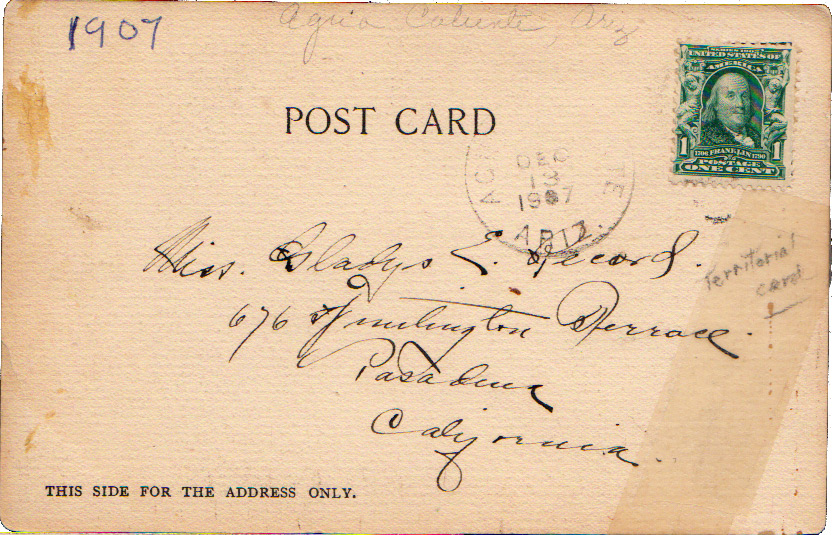 1907
Agua Caliente, Ariz
POST CARD
SERIES 1902
UNITED STATES OF
AMERICA
1 1706 FRANKLIN 1790 1
POSTAGE
ONE CENT
DEC
13
1907
ARIZ.
Territorial
card
Miss. Gladys E. Record.
676 Terrace.
Pasadena
California.
THIS SIDE FOR THE ADDRESS ONLY.